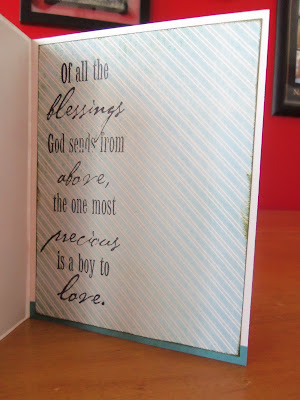 Of all the
blessings
God sends from
above,
the one most
precious
is a boy to
love.